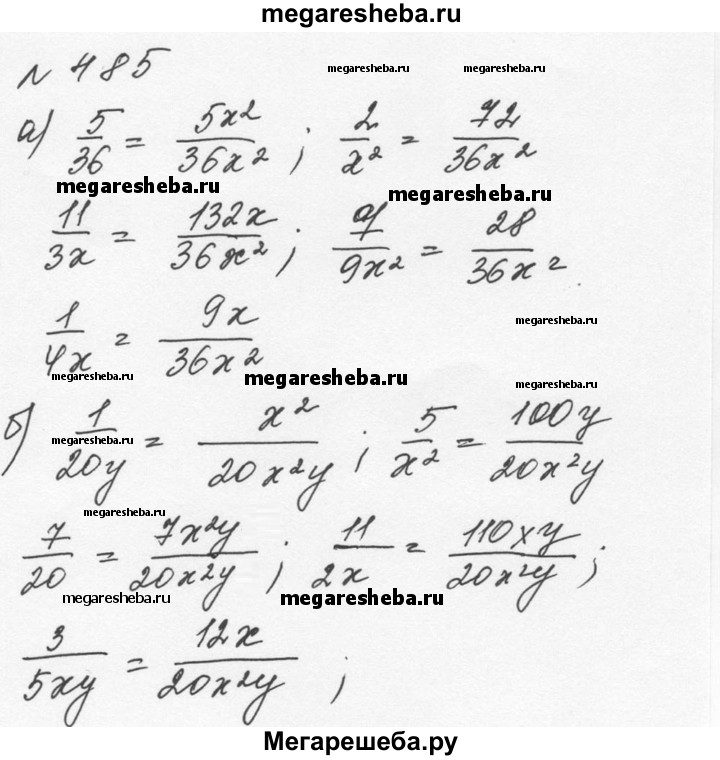 megaresheba.ru
№ 485
megaresheba.ru megaresheba.ru
а) 5/36 = 5x²/36x² ; 2/x² = 72/36x²
megaresheba.ru megaresheba.ru
11/3x = 132x/36x² ; 7/9x² = 28/36x².
megaresheba.ru
1/4x = 9x/36x²
megaresheba.ru megaresheba.ru megaresheba.ru
б) 1/20y = x²/20x²y ; 5/x² = 100y/20x²y
megaresheba.ru
megaresheba.ru
7/20 = 7x²y/20x²y ; 11/2x = 110xy/20x²y ;
megaresheba.ru megaresheba.ru
3/5xy = 12x/20x²y ;
Мегарешеба.ру